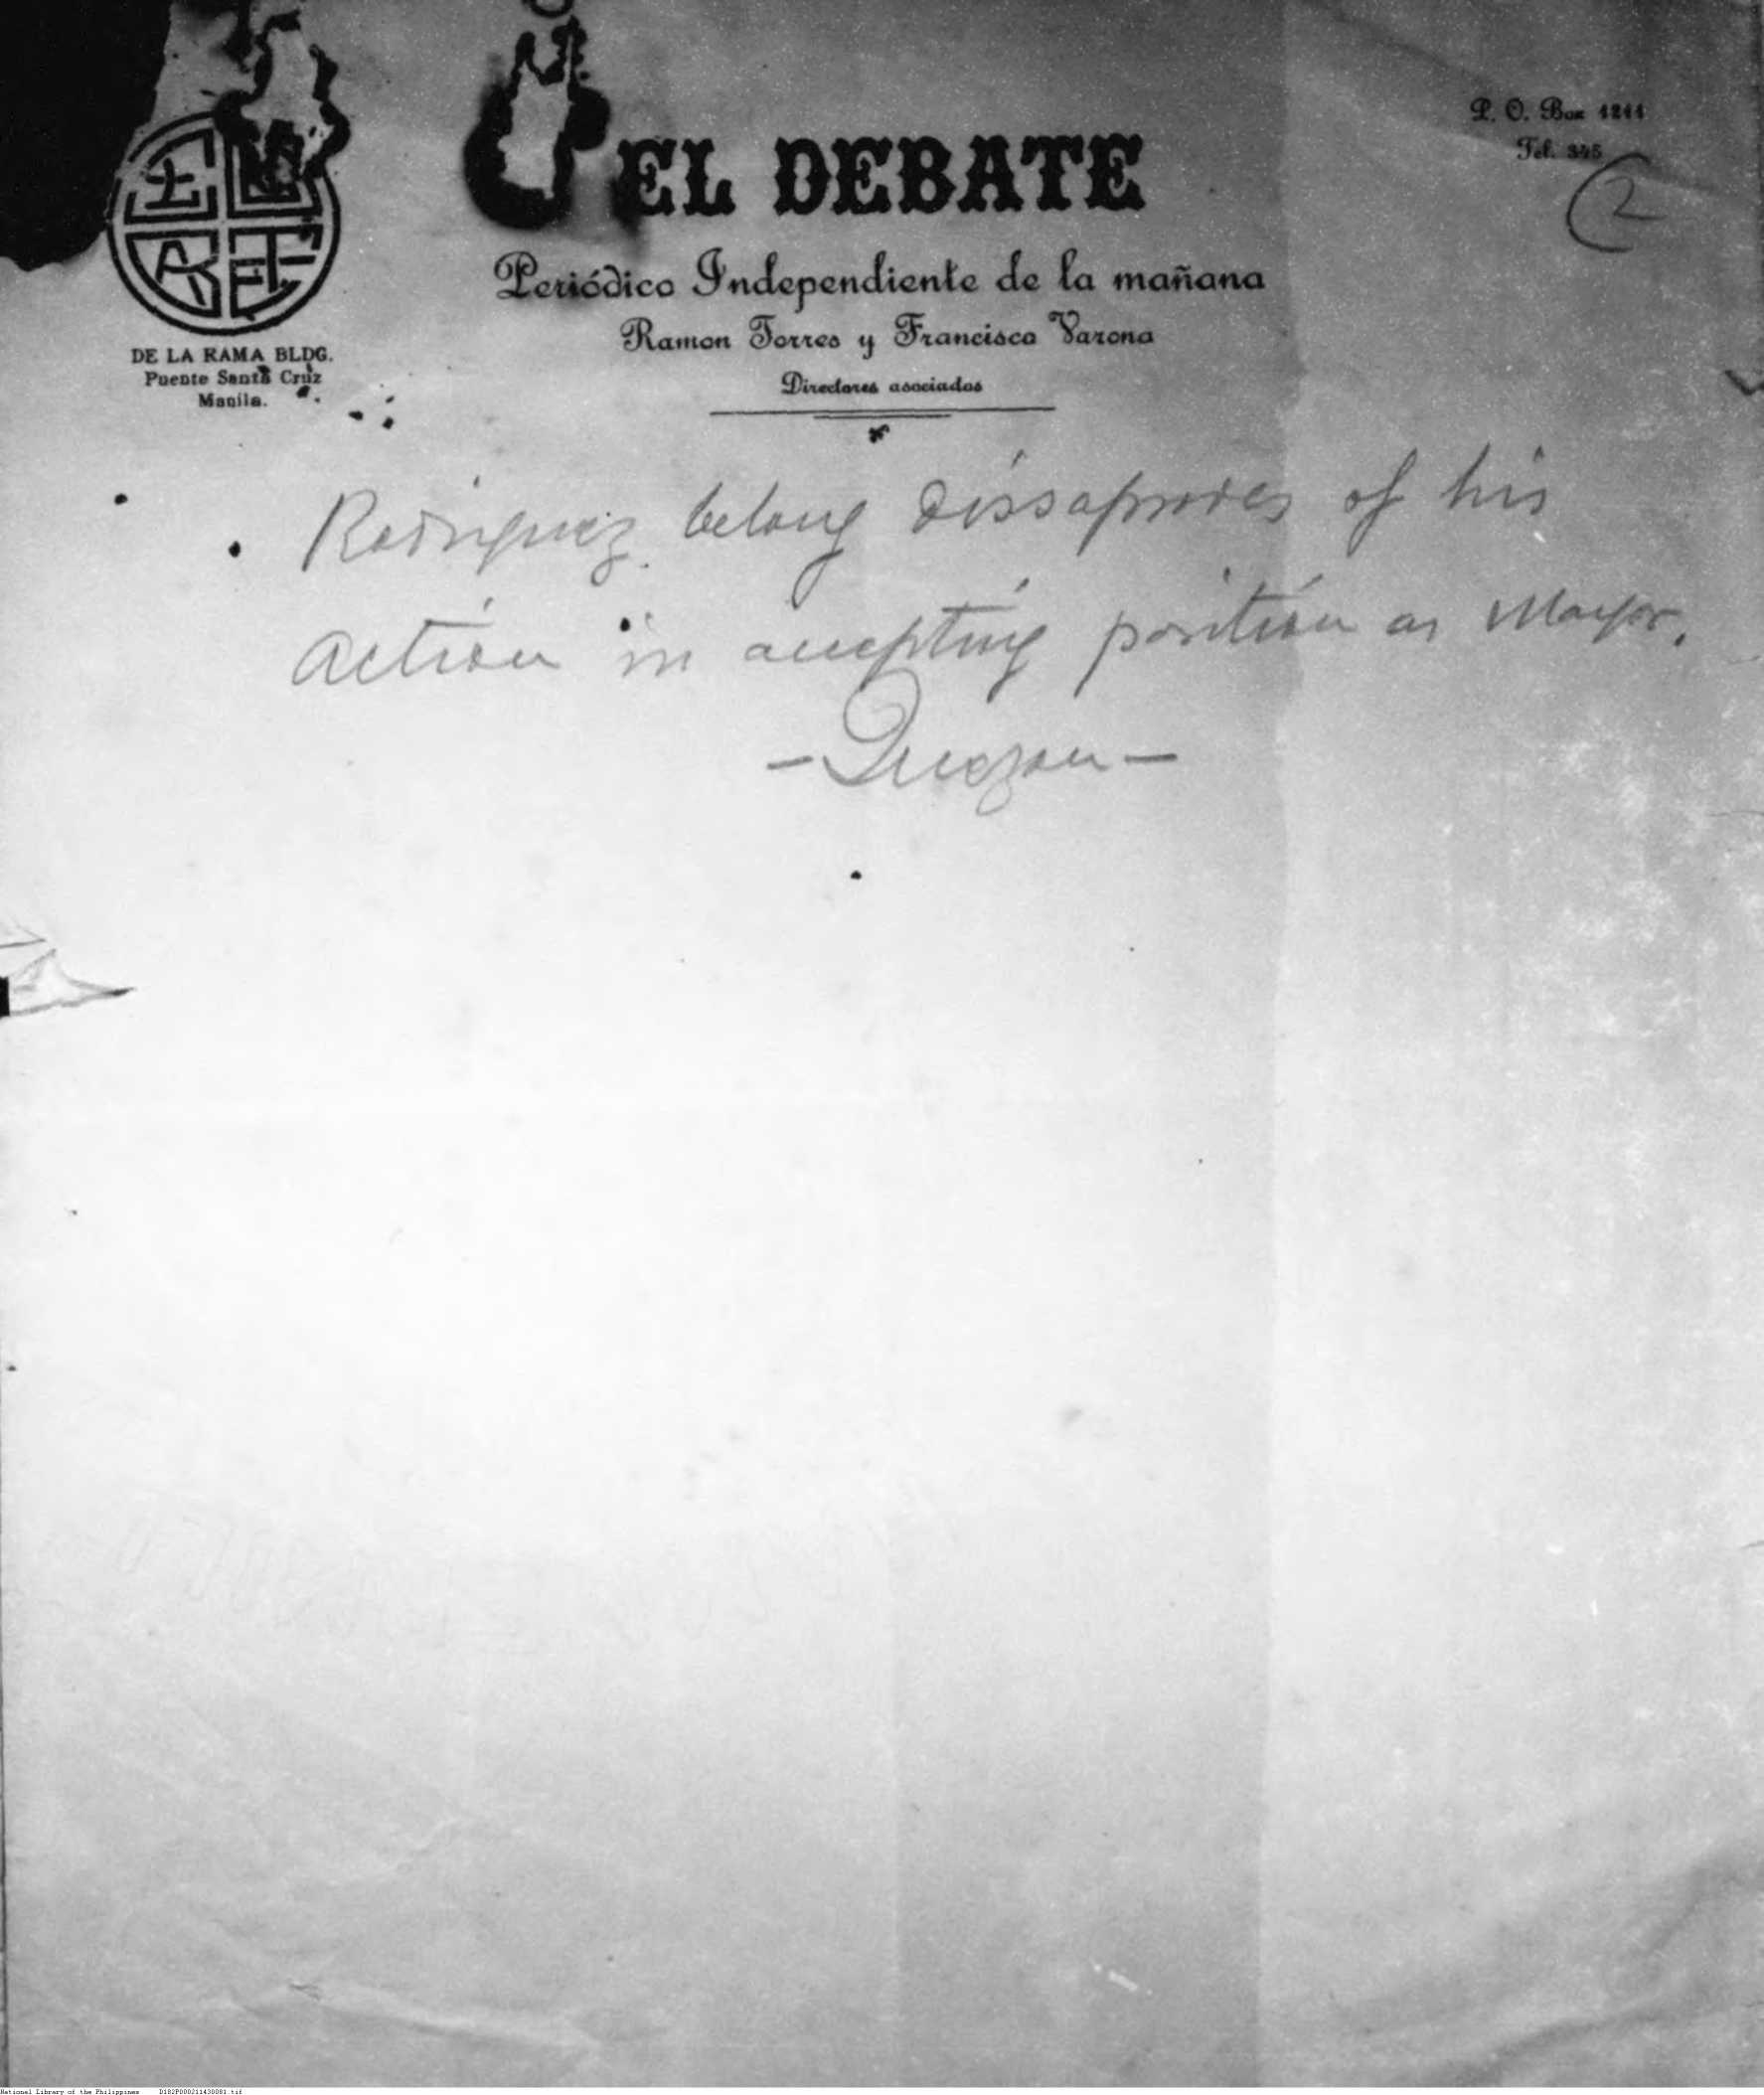 P. O. Box 1211
Tel. 345
2
EL DEBATE
Periódico Independiente de la mañana
Ramon Torres y Francisco Varona
Directores asociados
DE LA RAMA BLDG.
Puente Santa Cruz
Manila.
Rodriguez belong dissaproves of his
action in accepting position as Mayor.
- Quezon -
National Library of the Philippines D182P000211430081.tif